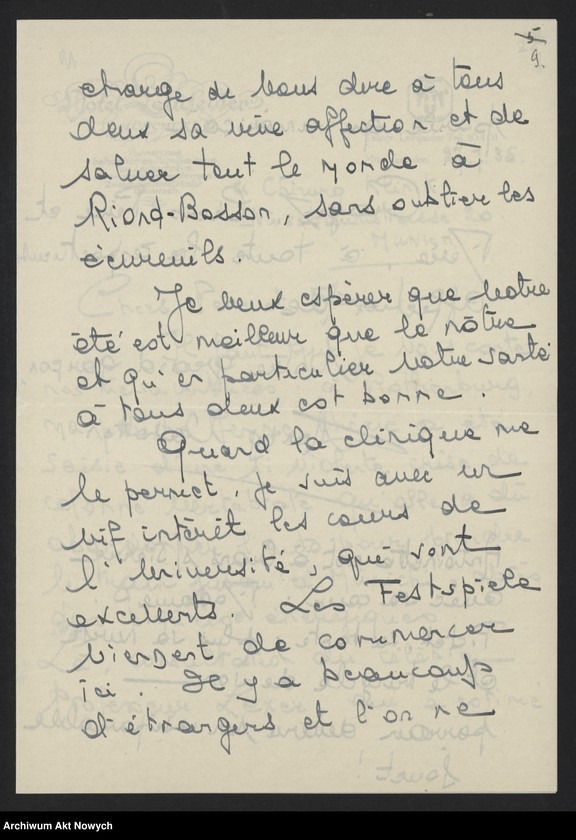 5
9.
charge de vous dire à tous
deux sa vive affection et de
saluer tout le monde à
Riond-Bosson, sans oublier les
écureuils.
Je veux espérer que votre
été est meilleur que le nôtre
et qu'en particulier votre santé
à tous deux est bonne.
Quand la clinique me
le permet, je suis avec un
vif intérêt les cours de
l'Université, qui sont
excellents. Les Festspiele
viennent de commencer
ici. Il y a beaucoup
d'étrangers et l'on ne
Archiwum Akt Nowych